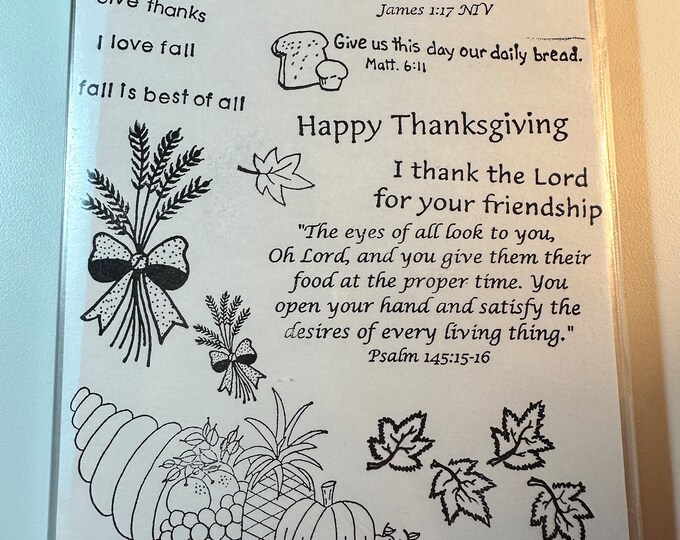 Give thanks
James 1:17 NIV
I love fall
Give us this day our daily bread.
Matt. 6:11
fall is best of all
Happy Thanksgiving
I thank the Lord
for your friendship
"The eyes of all look to you,
Oh Lord, and you give them their
food at the proper time. You
open your hand and satisfy the
desires of every living thing."
Psalm 145:15-16